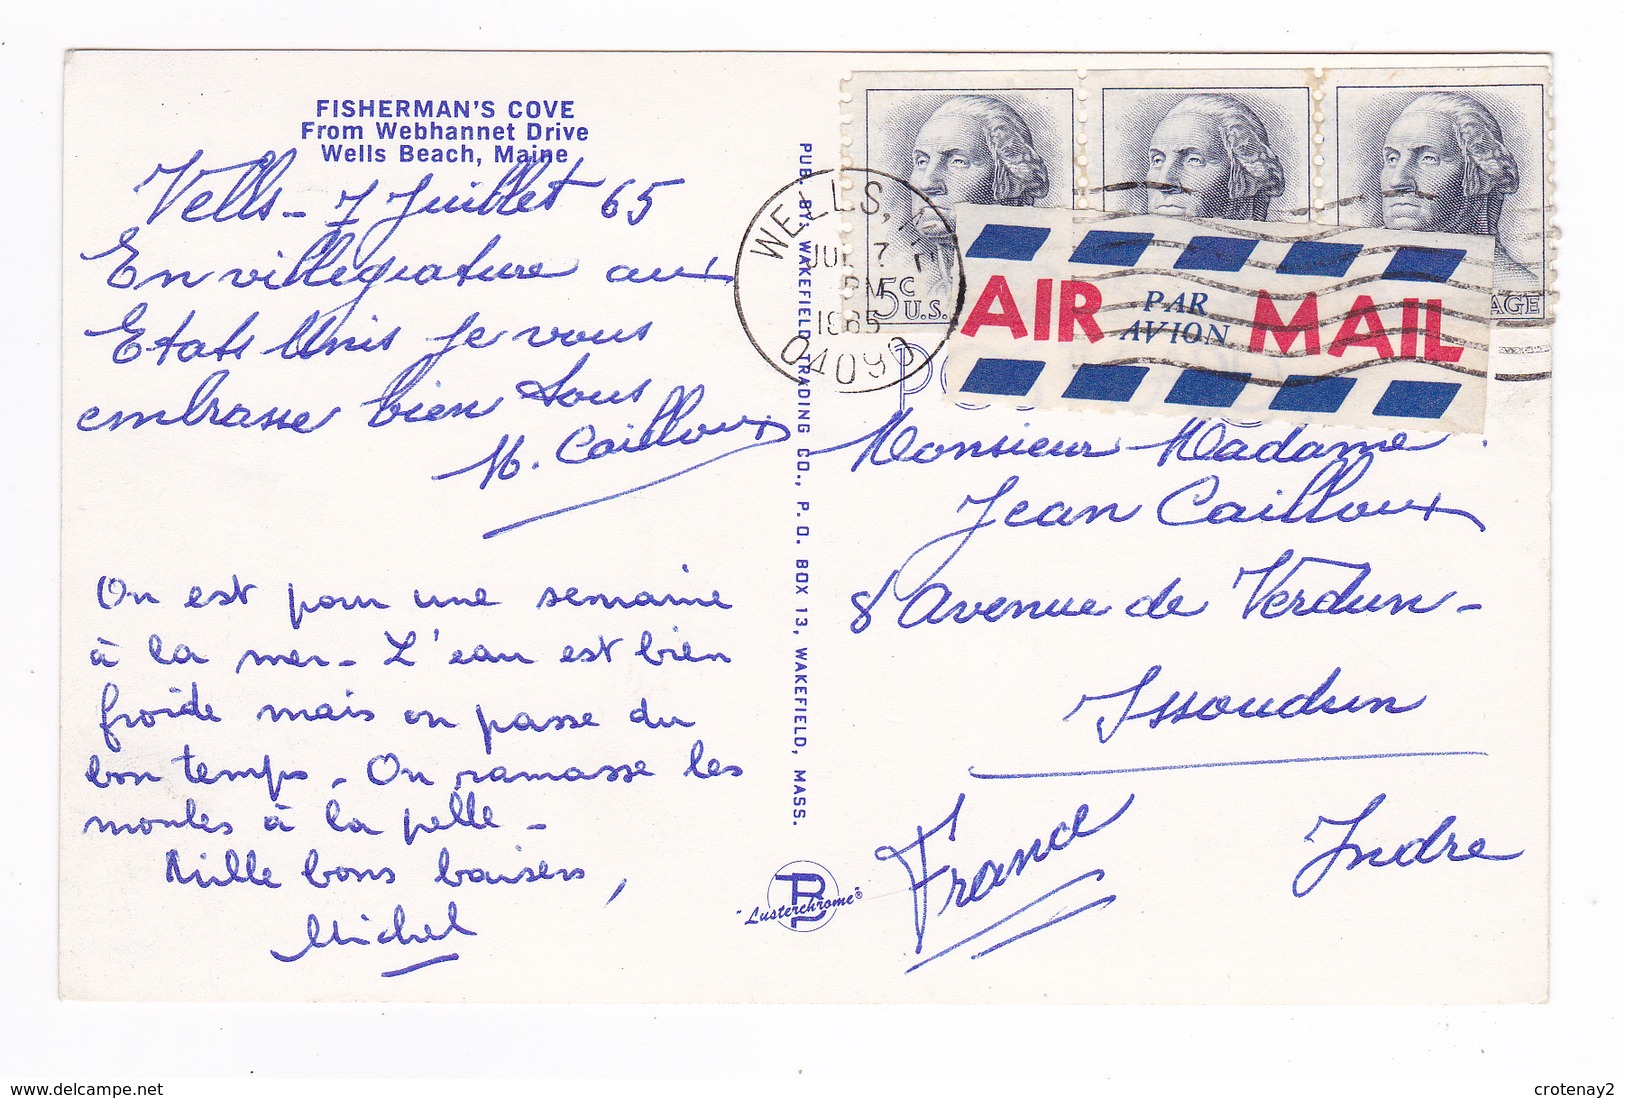 FISHERMAN'S COVE
From Webhannet Drive
Wells Beach, Maine
Vells - 7 Juillet 65
En villegiature aux
Etats Unis je vous
embrasse bien tous
M. Cailloux
On est pour une semaine
à la mer - L'eau est bien
froide mais on passe du
bon temps - On ramasse les
moules à la pelle -
Mille bons baisers,
Michel
PUB. BY: WAKEFIELD TRADING CO., P. O. BOX 13, WAKEFIELD, MASS.
"Lusterchrome"®
WELLS, ME
JUL 7
PM
1965
04090
5c
U.S.
AGE
AIR PAR AVION MAIL
Monsieur Madame
Jean Cailloux
8 Avenue de Verdun -
Issoudun
Indre
France
www.delcampe.net
crotenay2